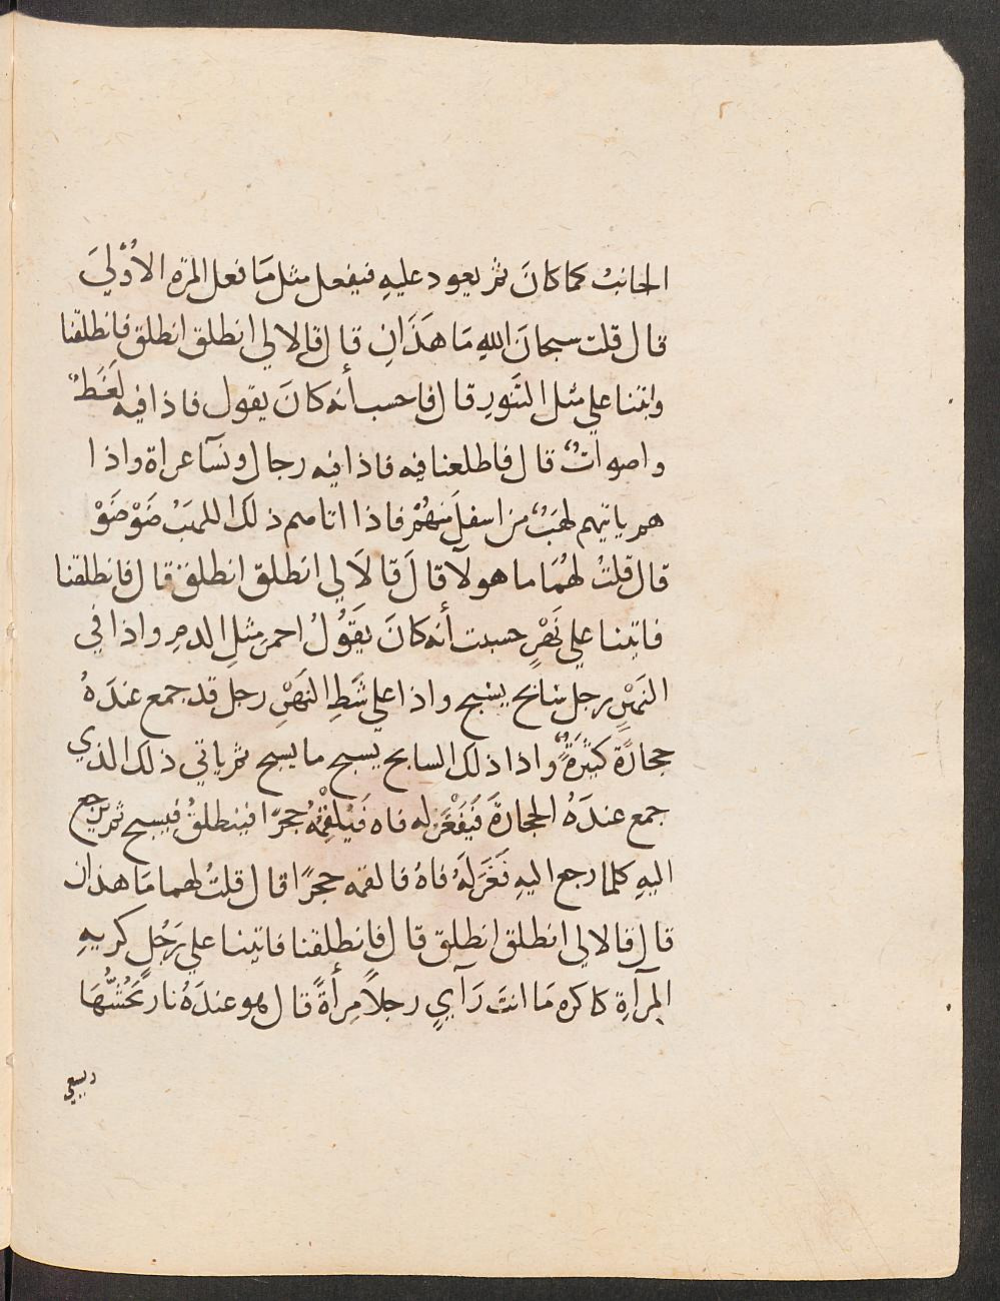 الجانبُ كما كانَ ثم يعود عليهِ فيفعل مثل مَا فعل المرّه الاُوْليَ
قال قلت سبحانَ اللهِ مَا هَذَانِ قال قالا لي انطلق انطلق فانطلقنا
واتينا علي مثل التَنورِ قال فاحسب أنه كانَ يقول فاذا فيه لَغَطٌ
واصواتٌ قال فاطلعنا فيه فاذا فيه رجال ونسآ عراة واذا
هم ياتيهم لهَبٌ من اسفلَ مِنهُمْ فاذا اتاهم ذلك اللهبُ ضَوْضَوْ
قال قلتُ لهُمَا ما هولآ قالَ قالَا لي انطلق انطلق قال فانطلقنا
فاتينا علي نَهْرٍ حسبت أنه كانَ يَقُولُ احمرِ مثلِ الدمِ واذا في
النهْرِ رجل سَابح يسبح واذا علي شَطِ النهْرِ رجل قد جمع عندَهُ
حجارًة كثيرَةً واذا ذلك السابح يسبح ما يسبح ثم ياتي ذلك الذي
جمع عندَهُ الحجارةَ فَيَفْغَرُ له فاه فَيُلقِمُهُ حجرًا فينطلقُ فيسبح ثم يرجع
اليهِ كلما رجع اليهِ فَغَرَ لَهُ فاهُ فالقمه حجرًا قال قلتُ لهما مَا هذان
قال قالا لي انطلق انطلق قال فانطلقنا فاتينا علي رَجُلٍ كريهِ
المِرآةِ كاكره مَا انتَ رَآيٍ رجلاً مِرأةً قال هو عندَهُ نار يَحُشُّهَا
ويسعي